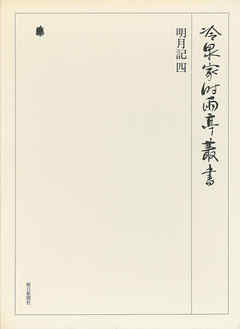 冷泉家時雨亭叢書
明月記 四
朝日新聞社